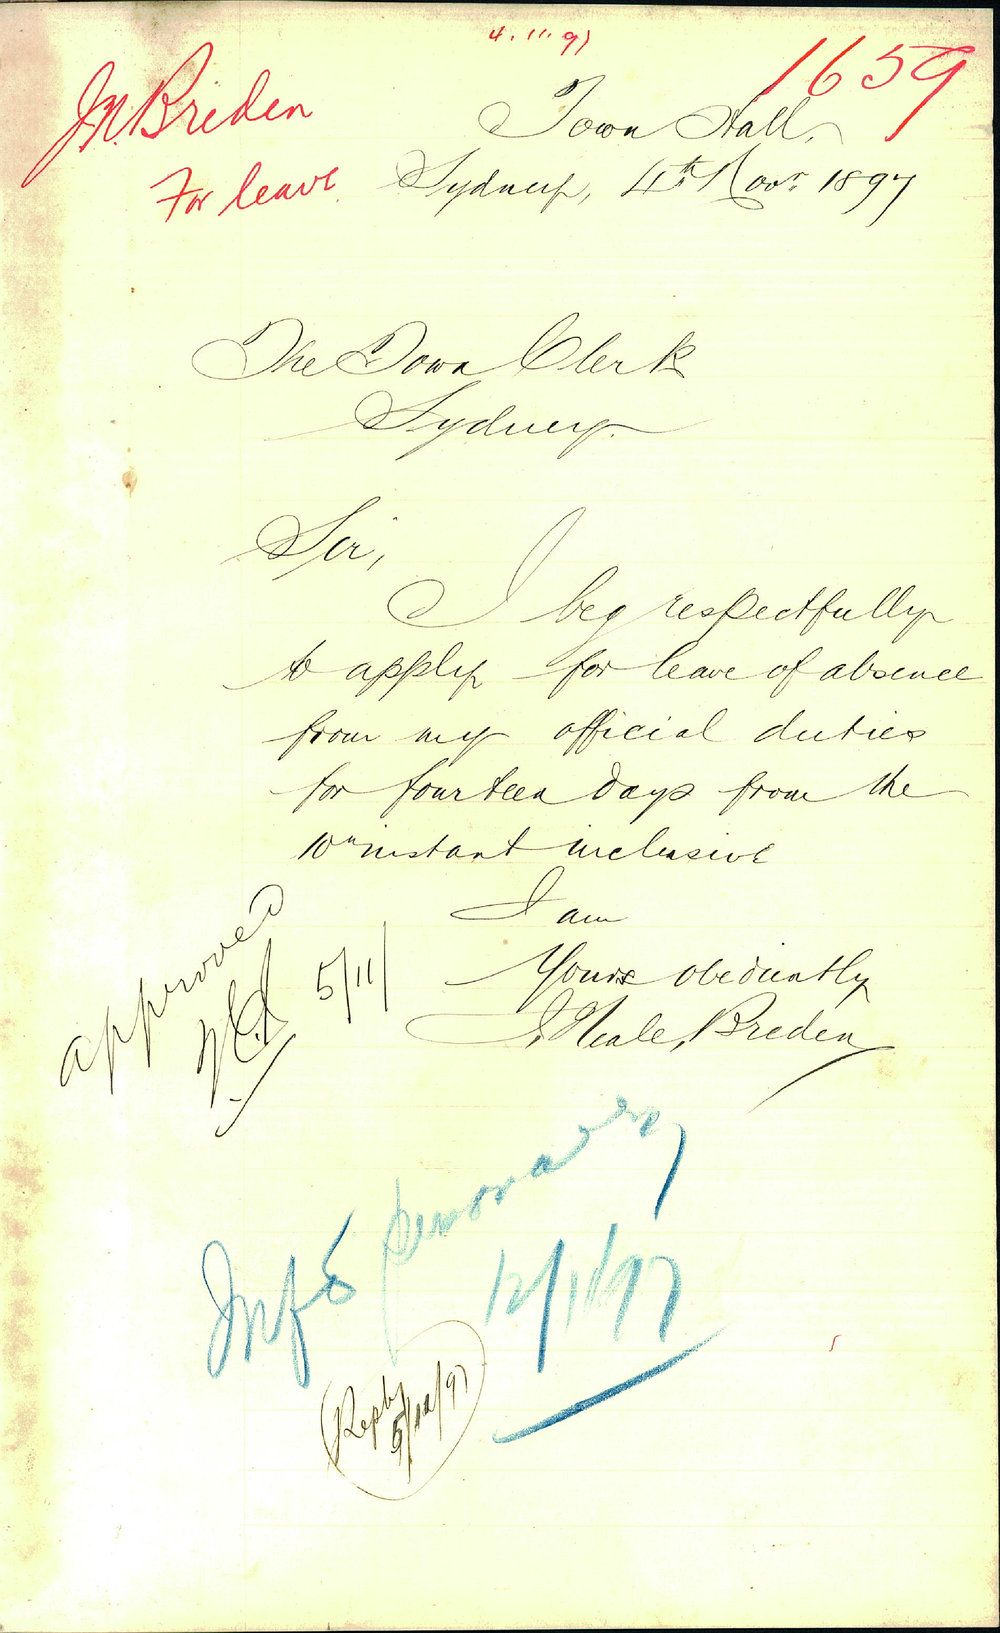 4.11.97
1659
J.N. Breden
For leave
Town Hall,
Sydney, 4th Novr. 1897
The Town Clerk
Sydney.
Sir,
I beg respectfully
to apply for leave of absence
from my official duties
for fourteen days from the
10th instant inclusive
I am
Yours obediently
J. Neale, Breden
approved
5/11/
Inf
12/11/97
Reply
5/11/97